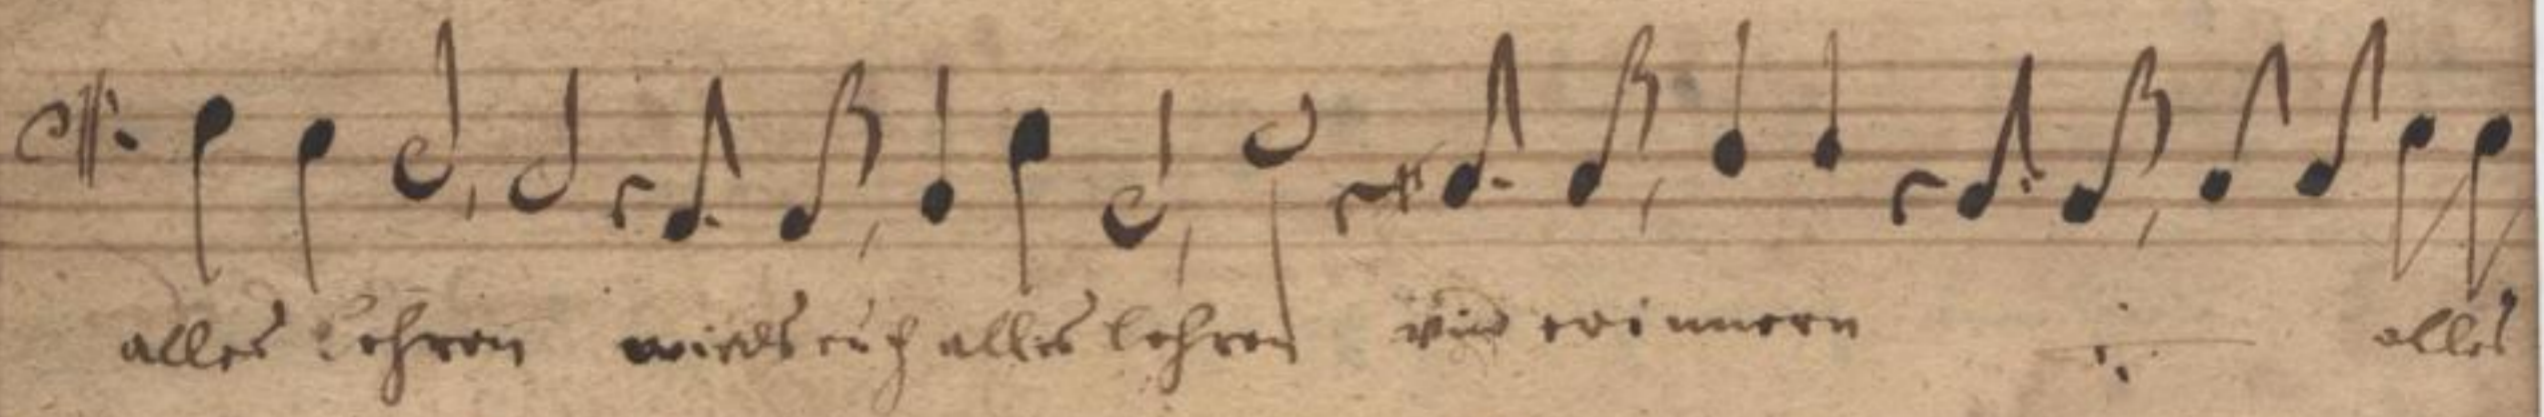 alles Lehren wirds euch alles lehren und erinnern ij alles